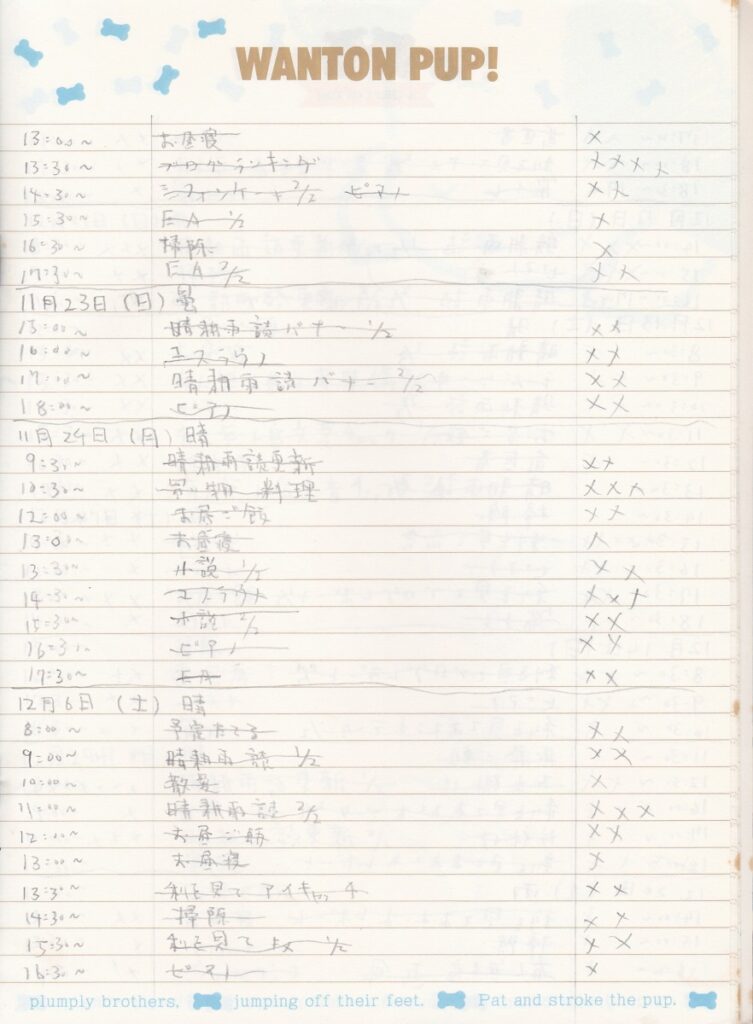 WANTON PUP!
13:00~ お昼寝 ×
13:30~ ブログランキング ××××
14:30~ シフォンケーキ 2/2 ピアノ ××
15:30~ EA 1/2 ×
16:30~ 掃除 ×
17:30~ EA 2/2 ××
11月23日(日)曇
15:00~ 晴耕雨読バナー 1/2 ××
16:00~ エスラウノ ××
17:00~ 晴耕雨読バナー 2/2 ××
18:00~ ピアノ ××
11月24日(月)晴
9:30~ 晴耕雨読更新 ××
10:30~ 買い物 料理 ×××
12:00~ お昼ご飯 ××
13:0 お昼寝
13:30~ 小説 1/2 ××
14:30~ エスラウノ ×××
15:30~ 小説 2/2 ××
16:30~ ピアノ ××
17:30~ EA ××
12月6日(土)晴
8:00~ 予定たてる ××
9:00~ 晴耕雨読 1/2 ××
10:00~ 散髪 ×
11:00~ 晴耕雨読 2/2 ×××
12:00~ お昼ご飯 ××
13:00~ お昼寝 ×
13:30~ 私を見て アイキャッチ ××
14:30~ 掃除 ××
15:30~ 私を見て 1/2 ××
16:30~ ピアノ ×
plumply brothers, jumping off their feet. Pat and stroke the pup.